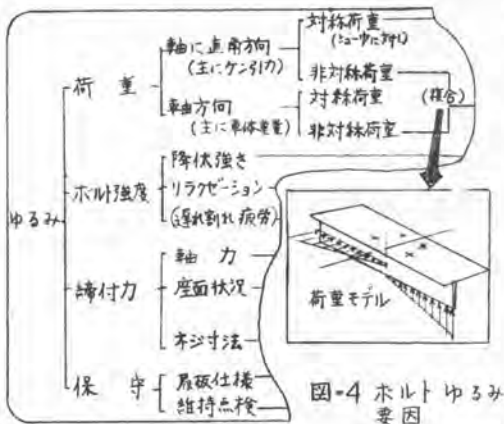 ゆるみ
荷重
軸に直角方向
(主にケン引力)
対称荷重
非対称荷重
軸方向
(主に車体重量)
対称荷重
非対称荷重
(複合)
ボルト強度
降伏強さ
リラクゼーション
(遅れ割れ疲労)
締付力
軸力
座面状況
ネジ寸法
保守
仕様
維持点検
荷重モデル
図-4 ボルトゆるみ
要因